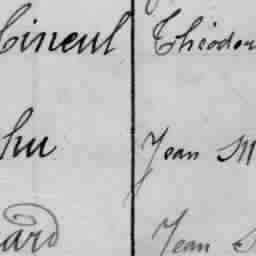 Cineul Théodor
hu Jean M
ard Jean